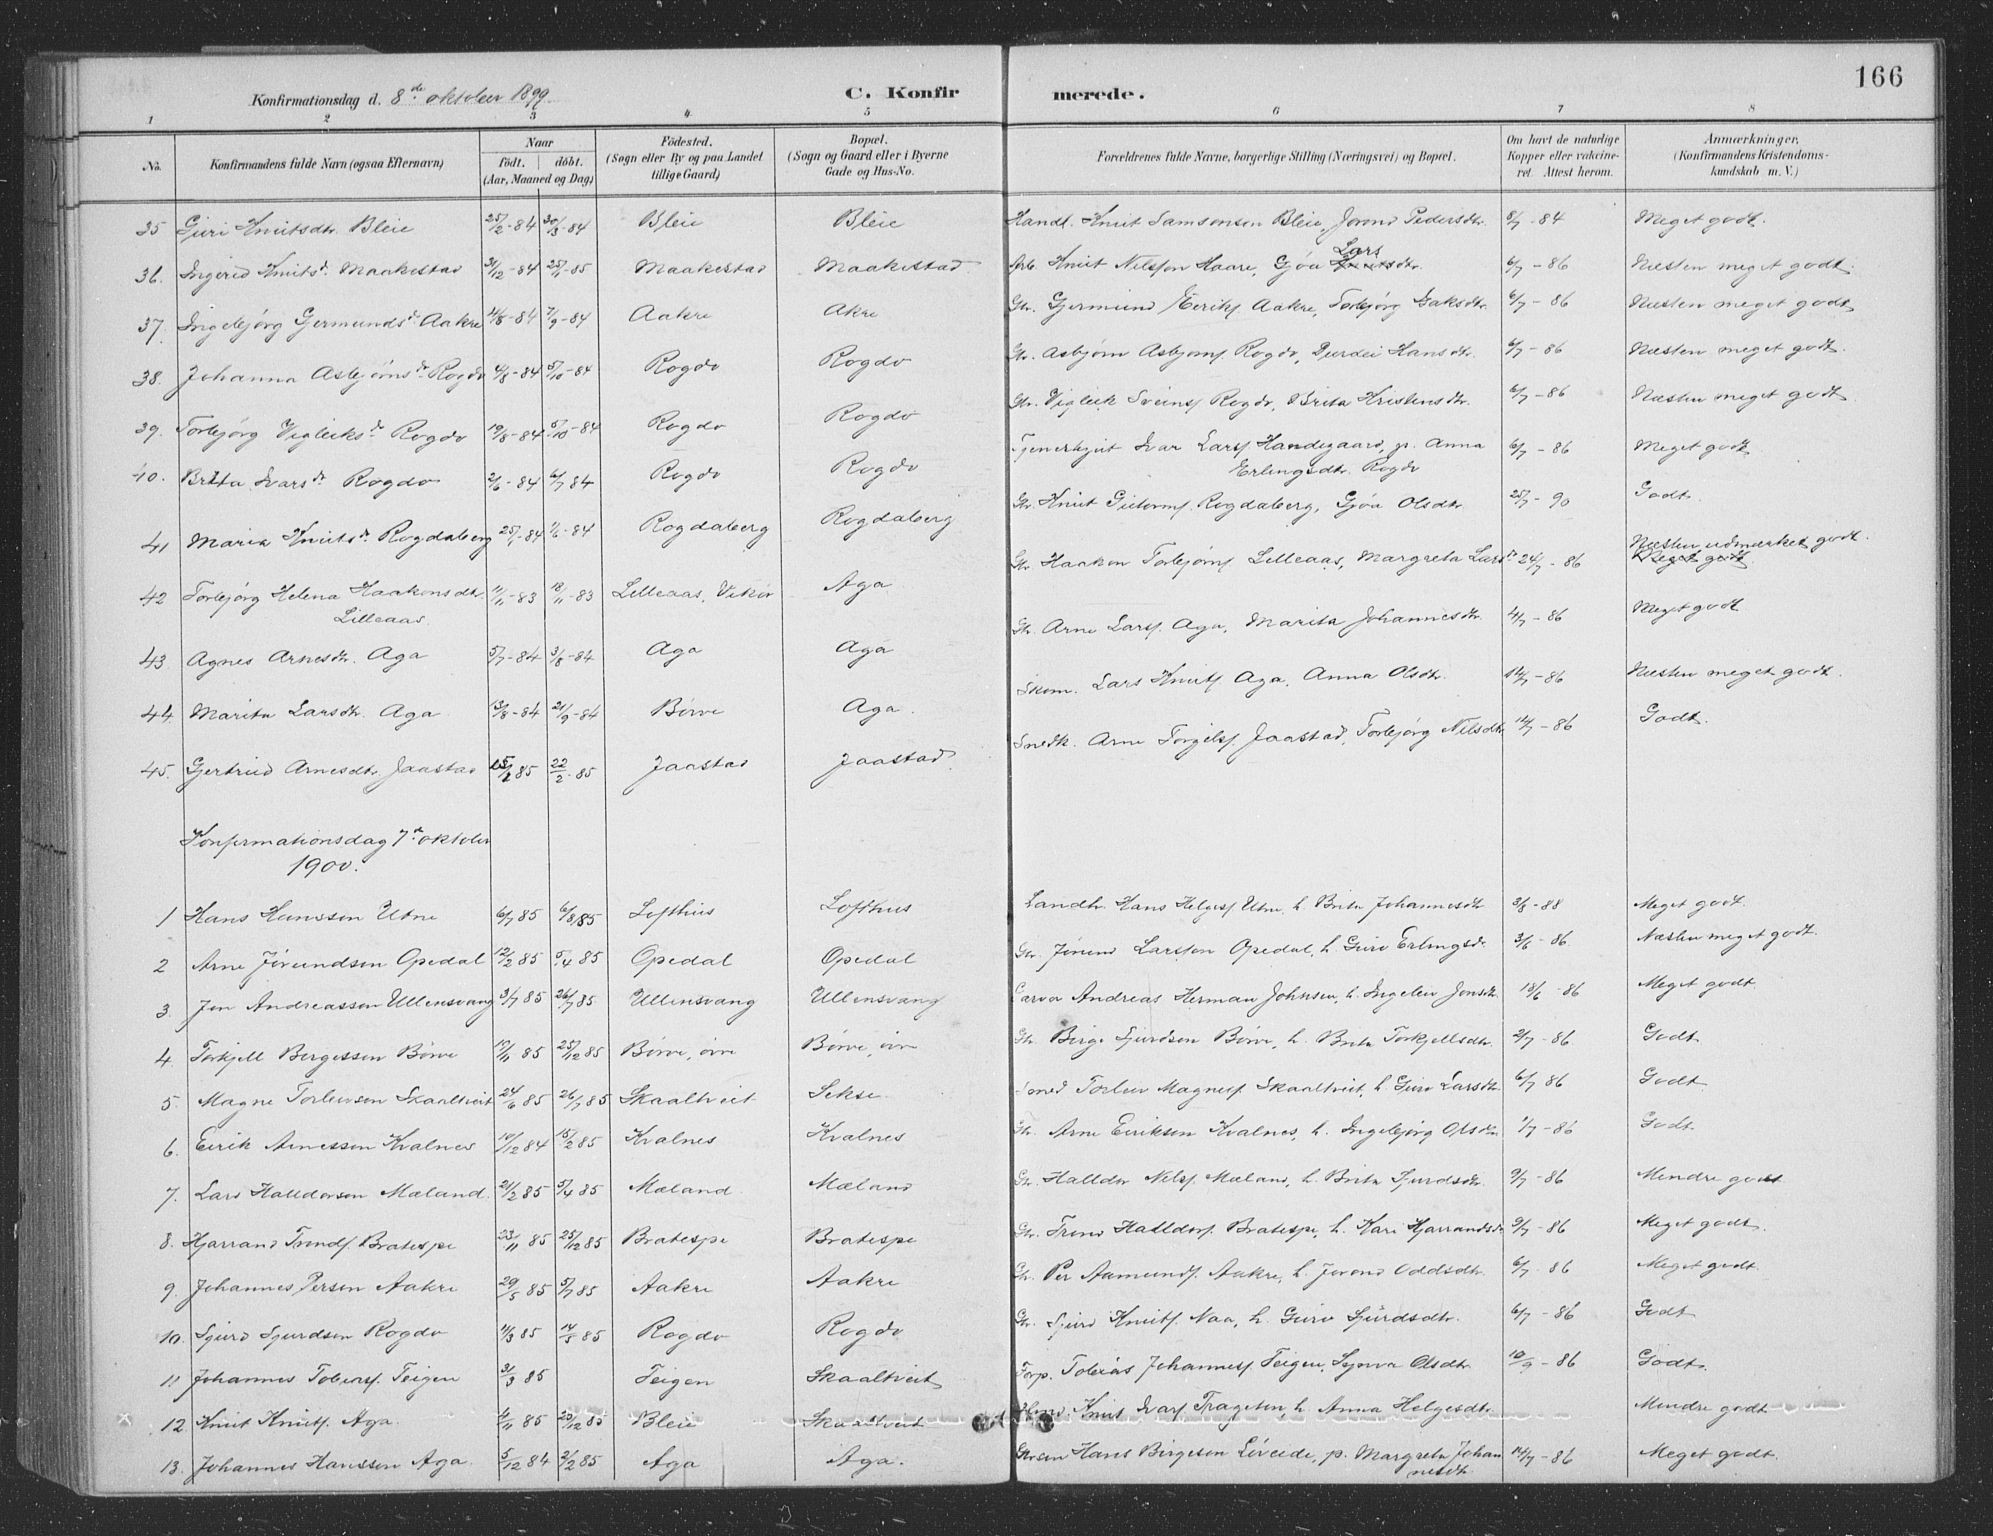 166
Konfirmationsdag d. 8de oktober 1899. C. Konfir merede.
1 2 3 4 5 6 7 8
No. Konfirmandens fulde Navn (ogsaa Efternavn) Naar födt. döbt. (Aar, Maaned og Dag) Födested. (Sogn eller By og paa Landet tillige Gaard) Bopæl. (Sogn og Gaard eller i Byerne Gade og Hus-No. Forældrenes fulde Navne, borgerlige Stilling (Næringsvei) og Bopæl. Om havt de naturlige Kopper eller vakcineret. Attest herom. Anmærkninger, (Konfirmandens Kristendomskundskab m. V.)
35 Guri Knutsdtr. Bleie 25/2-84 30/3-84 Bleie Bleie Handl. Knut Samsonsen Bleie, Jorond Pedersdtr. 8/7-84 Meget godt.
36. Ingerid Knutsdr. Maakestad 31/12-84 25/1-85 Maakestad Maakestad Arb. Knut Nilsson Haare, Gjøa Larsdtr. 6/7-86 Næsten meget godt.
37. Ingebjørg Germundsdr. Aakre 11/8-84 7/9-84 Aakre Akre Gr. Germund Eeriks. Aakre, Torbjørg Isaksdtr. 6/7-86 Næsten meget godt
38. Johanna Asbjørnsdr. Rogdo 4/8-84 5/10-84 Rogdo Rogdo Gr. Asbjørn Asbjørns. Rogdo, Durdei Hansdtr. 6/7-86 Næsten meget godt.
39. Torbjørg Vigleiksdr. Rogdo 19/8-84 5/10-84 Rogdo Rogdo Gr. Vigleik Sveins. Rogdo, Brita Kristensdtr. 6/7-86 Næsten meget godt
40. Brita Ivarsdr. Rogdo 2/6-84 6/7 84 Rogdo Rogdo Tjenerhjut Ivar Lars. Handegaard, p. Anna Erlingsdtr. Rogdo 6/7-86 Meget godt
41 Maria Knutsdr. Rogdaberg 25/1-84 1/6-84 Rogdaberg Rogdaberg Gr. Knut Guttorms. Rogdaberg, Gjøa Olsdtr 25/7-90 Godt.
42 Torbjørg Helena Haakonsdtr. Lilleaas. 11/11-83 18/11-83 Lilleaas, Vikør Aga Gr. Haakon Torbjørns. Lilleaas, Margreta Larsdr 24/7-86 Næsten udmærket godt. Meget godt
43 Agnes Arnesdtr. Aga 5/7-84 3/8-84 Aga Aga Gr. Arne Lars. Aga, Marita Johannesdtr. 4/7-86 Meget godt
44 Marita Larsdtr. Aga 13/8-84 21/9-84 Børve Aga. Skom. Lars Knuts. Aga, Anna Olsdtr. 14/7-86 Næsten meget godt.
45. Gjertrud Arnesdtr. Jaastad 15/1 85 22/2-85 Jaastad Jaastad Snedk. Arne Torgils. Jaastad, Torbjørg Nilsdtr 14/7-86 Godt.
Konfirmationsdag 7de oktober
1900.
1 Hans Hansson Utne 6/7 85 6/8 85 Lofthus Lofthus Landh. Hans Helges. Utne, h. Brita Johannesdtr 3/8-88 Meget godt.
2 Arne Jørundsen Opedal 12/2 85 5/4 85 Opedal Opedal Gr. Jørund Larsson Opedal, h. Guro Erlingsdr 3/6-86. Næsten meget godt.
3. Jon Andreasson Ullensvang 3/7 85 26/7 85 Ullensvang Ullensvang Garver Andreas Herman Johnsen, h. Ingelev Jonsdtr. 18/6-86 Meget godt.
4 Torkjell Bergesson Børve 19/11 85 25/12 85 Børve, øvre Børve, øvre Gr. Birge Sjurdson Børve, h. Brita Torkjellsdtr. 2/7-86 Godt
5. Magne Torleivson Skaaltveit 24/6 85 26/7 85 Skaaltveit Sekse Smed Torleiv Magnes. Skaaltveit, h. Guro Larsdtr. 6/7 86 Godt
6. Eirik Arnesson Kvalnes 10/12 84 15/2 85 Kvalnes Kvalnes Gr. Arne Eirikson Kvalnes, h. Ingebjørg Olsdtr. 1/7-86 Godt
7. Lars Halldorson Mæland. 21/2 85 5/4 85 Mæland Mæland Gr. Halldor Nils. Mæland, h. Brita Sjurdsdtr. 9/7-86 Mindre godt
8. Hjarrand Tronds. Bratespe 23/11 85 25/12 85 Bratespe Bratespe Gr. Trond Halldors. Bratespe, h. Kari Hjarrandsdr 9/7-86 Meget godt.
9. Johannes Persen Aakre 29/5 85 5/7 85 Aakre Aakre Gr. Per Aamunds. Aakre, h. Jorond Oddsdtr. 6/7-86 Meget godt.
10. Sjurd Sjurdsen Rogdo 11/3 85 14/5 85 Rogdo Rogdo Gr. Sjurd Knuts. Naa, h. Guro Sjurdsdtr. 6/7-86 Godt
11 Johannes Tobias. Teigen 31/3 85 Teigen Skaaltveit Forp. Tobias Johannes. Teigen, Synva Olsdtr. 10/9-86 Godt.
12. Knut Knuts. Aga. 85 25/12 85 Bleie Skaaltveit Knut Ivars. Trageton, h. Anna Helgesdtr. Mindre godt
13. Johannes Hansson Aga. 5/12 84 2/2 85 Aga Aga. Grsøn Hans Birgeson Løveide, p. Margreta Johannesdtr. 14/7-86 Meget godt.